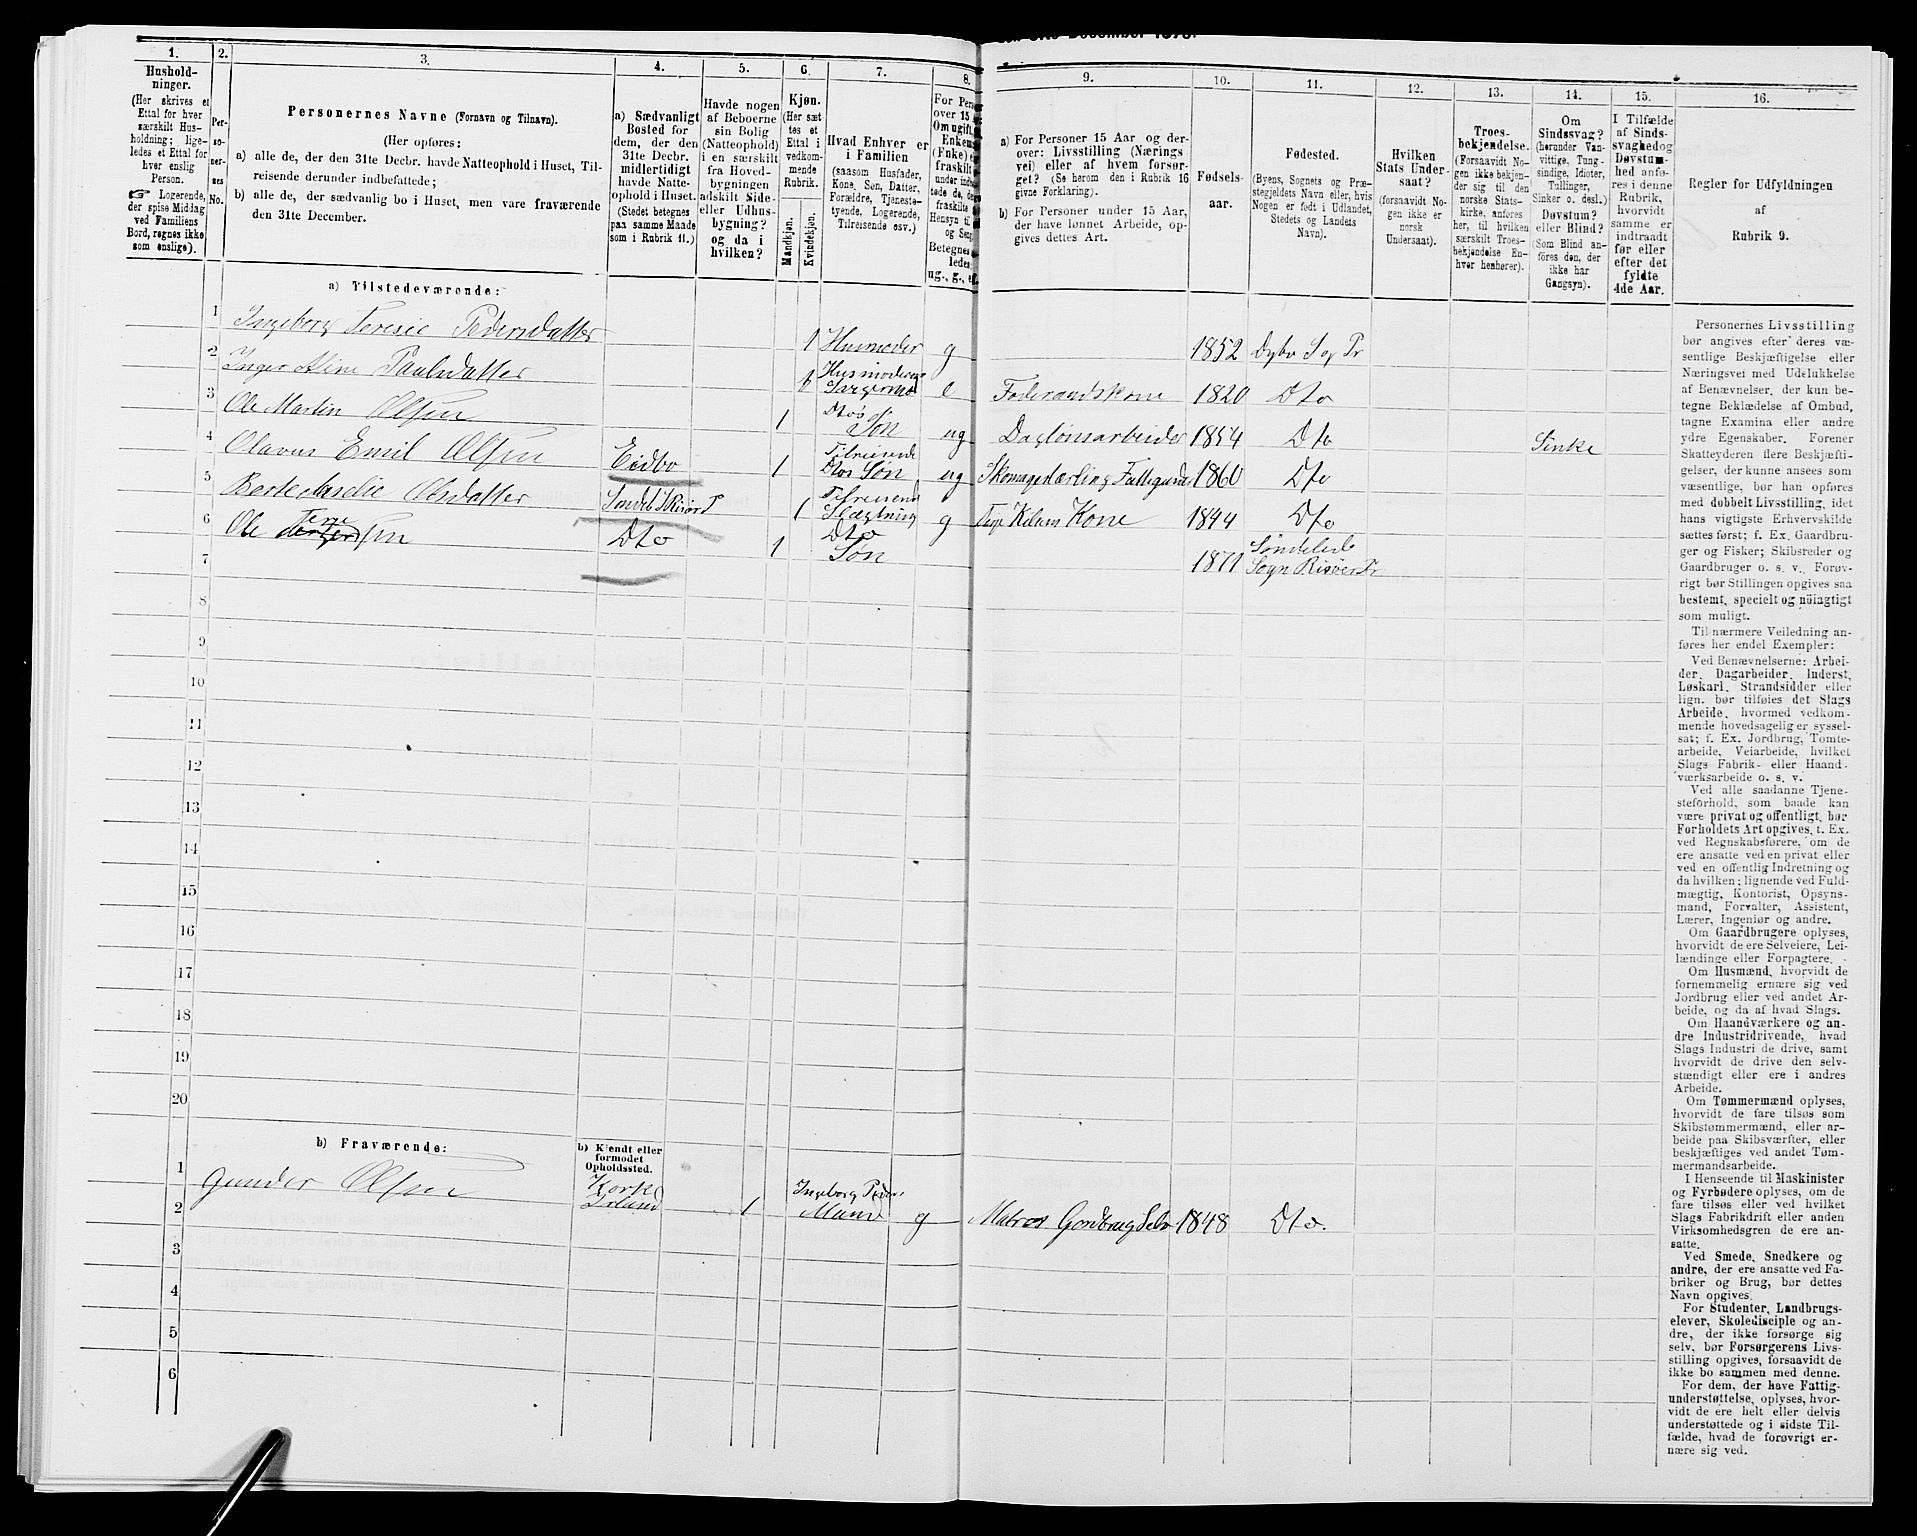 den 31te December 1875.
1. 2. 3. 4. 5. 6. 7. 8. 9. 10. 11. 12. 13. 14. 15. 16.
Hushold-
ninger.
(Her skrives et
Ettal for hver
særskilt Hus-
holdning; lige-
ledes et Ettal for
hver enslig
Person.
☞ Logerende,
der spise Middag
ved Familiens
Bord, regnes ikke
som enslige).
Per-
so-
ner-
nes
No.
Personernes Navne (Fornavn og Tilnavn).
(Her opføres:
a) alle de, der den 31te Decbr. havde Natteophold i Huset, Til-
reisende derunder indbefattede;
b) alle de, der sædvanlig bo i Huset, men vare fraværende
den 31te December.
a) Sædvanligt
Bosted for
dem, der den
31te Decbr.
midlertidigt
havde Natte-
ophold i Huset.
(Stedet betegnes
paa samme Maade
som i Rubrik 11.)
Havde nogen
af Beboerne
sin Bolig
(Natteophold)
i en særskilt
fra Hoved-
bygningen
adskilt Side-
eller Udhus-
bygning?
og da i
hvilken?
Kjøn.
(Her sæt-
tes et
Ettal i
vedkom-
mende
Rubrik.
Mandkjøn.
Kvindekjøn.
Hvad Enhver er
i Familien
(saasom Husfader,
Kone, Søn, Datter,
Forældre, Tjeneste-
tyende, Logerende,
Tilreisende osv.).
For Pers
over 15
Om ugift,
Enkem
(Enke)
fraskilt
Betegnes
ledes
ug., g., e
a) For Personer 15 Aar og der-
over: Livsstilling (Nærings-
vei) eller af hvem forsør-
get? (Se herom den i Rubrik 16
givne Forklaring).
b) For Personer under 15 Aar,
der have lønnet Arbeide, op-
gives dettes Art.
Fødsels-
aar.
Fødested.
(Byens, Sognets og Præ-
stegjeldets Navn eller, hvis
Nogen er født i Udlandet,
Stedets og Landets
Navn).
Hvilken
Stats Under-
saat?
(forsaavidt No-
gen ikke er
norsk
Undersaat).
Troes-
bekjendelse.
(Forsaavidt No-
gen ikke bekjen-
der sig til den
norske Stats-
kirke, anføres
her, til hvilken
særskilt Troes-
bekjendelse En-
hver henhører).
Om
Sindssvag?
(herunder Van-
vittige, Tung-
sindige, Idioter,
Tullinger,
Sinker o. desl.)
Døvstum?
eller Blind?
(Som Blind an-
føres den, der
ikke har
Gangsyn).
I Tilfælde
af Sinds-
svaghed og
Døvstum-
hed anfø-
res i denne
Rubrik,
hvorvidt
samme er
indtraadt
før eller
efter det
fyldte
4de Aar.
Regler for Udfyldningen
af
Rubrik 9.
a) Tilstedeværende:
1 Ingeborg Teresie Pedersdatter 1 Husmoder g 1852 Dybv S og Pr
2 Inger Aline Paulsdatter 1 Husmoderens e Føderaadskone 1820 Dto
3 Ole Martin Olsen 1 Dtos Søn ug Daglønsarbeider 1854 Dto Sinke
4 Olavus Emil Olsen Eidbo 1 Tilreisende Dtos Søn ug Skomagerlærling 1860 Dto
5 Berte Olsdatter Søndel S Risør P 1 Tilreisend Slægtning g Kone 1844 Dto
6 Ole Tene sen Dto 1 Dto Søn 1871 Søndeleds Sogn Risøer Pr
7
8
9
10
11
12
13
14
15
16
17
18
19
20
b) Fraværende:
b) Kjendt eller
formodet
Opholdssted.
1 Gunder Olsen Kork Irland 1 Ingeborg Peders Mand g Matros Gordbrug Selv 1848 Dto.
2
3
4
5
6
Personernes Livsstilling
bør angives efter deres væ-
sentlige Beskjæftigelse eller
Næringsvei med Udelukkelse
af Benævnelser, der kun be-
tegne Beklædelse af Ombud,
tagne Examina eller andre
ydre Egenskaber. Forener
Skatteyderen flere Beskjæfti-
gelser, der kunne ansees som
væsentlige, bør han opføres
med dobbelt Livsstilling, idet
hans vigtigste Erhvervskilde
sættes først; f. Ex. Gaardbru-
ger og Fisker; Skibsreder og
Gaardbruger o. s. v. Forøv-
rigt bør Stillingen opgives saa
bestemt, specielt og nöiagtigt
som muligt.
Til nærmere Veiledning an-
føres her endel Exempler:
Ved Benævnelserne: Arbei-
der, Dagarbeider, Inderst,
Løskarl, Strandsidder eller
lign. bør tilføies det Slags
Arbeide, hvormed vedkom-
mende hovedsagelig er syssel-
sat; f. Ex. Jordbrug, Tomte-
arbeide, Veiarbeide, hvilket
Slags Fabrik- eller Haand-
værksarbeide o. s. v.
Ved alle saadanne Tjene-
steforhold, som baade kan
være privat og offentligt, bør
Forholdets Art opgives, t. Ex.
ved Regnskabsførere, om de
ere ansatte ved en privat eller
ved en offentlig Indretning og
da hvilken; lignende ved Fuld-
mægtig, Kontorist, Opsyns-
mand, Forvalter, Assistent,
Lærer, Ingeniør og andre.
Om Gaardbrugere oplyses,
hvorvidt de ere Selveiere, Lei-
lændinge eller Forpagtere.
Om Husmænd, hvorvidt de
fornemmelig ernære sig ved
Jordbrug eller ved andet Ar-
beide, og da af hvad Slags.
Om Haandværkere og an-
dre Industridrivende, hvad
Slags Industri de drive, samt
hvorvidt de drive den selv-
stændigt eller ere i andres
Arbeide.
Om Tømmermænd oplyses,
hvorvidt de fare tilsøs som
Skibstømmermænd, eller ar-
beide paa Skibsværfter, eller
beskjæftiges ved andet Tøm-
mermandsarbeide.
I Henseende til Maskinister
og Fyrbødere oplyses, om de
fare tilsøs eller ved hvilket
Slags Fabrikdrift eller anden
Virksomhedsgren de ere an-
satte.
Ved Smede, Snedkere og
andre, der ere ansatte ved Fa-
briker og Brug, bør dettes
Navn opgives.
For Studenter, Landbrugs-
elever, Skoledisciple og an-
dre, der ikke forsørge sig
selv, bør Forsørgerens Livs-
stilling opgives, forsaavidt de
ikke bo sammen med denne.
For dem, der have Fattig-
understøttelse, oplyses, hvor-
vidt de ere helt eller delvis
understøttede og i sidste Til-
fælde, hvad de forøvrigt er-
nære sig ved.